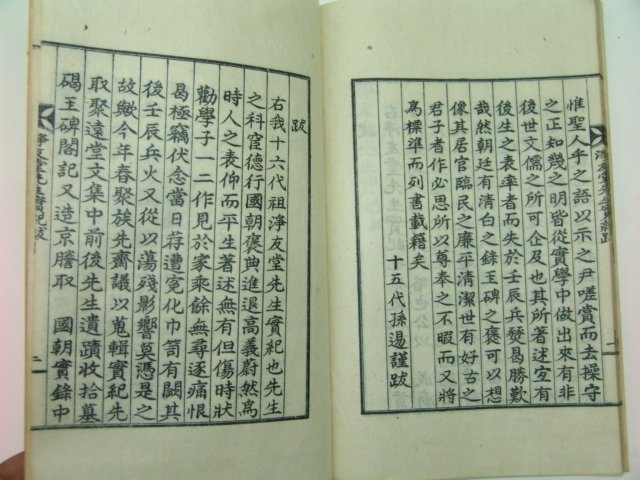 惟聖人乎之語以示之尹嗟賞而去操守
之正知幾之明皆從實學中做出來有非
後世文儒之所可企及也其所著述宜有
後生之表率者而失於壬辰兵燹曷勝歎
哉然朝廷有清白之錄玉碑之褒可以想
像其居官臨民之廉平清潔世有好古之
君子者作必思所以尊奉之不暇而又將
爲標準而列書載籍矣
十五代孫 謹跋
跋
右我十六代祖淨友堂先生實紀也先生
之科宦德行國朝褒典進退高義蔚然爲
時人之表仰而平生著述無有但傷時狀
勸學子一二作見於家乘餘無尋逐痛恨
曷極竊伏念當日荐遭竄化巾笥有闕其
後壬辰兵火又從以蕩殘影響莫憑是之
故歟今年春聚族先齋議以蒐輯實紀先
取聚遠堂文集中前後先生遺蹟收拾墓
碣王碑閣記又造京謄取 國朝實錄中
淨友堂先生實紀跋
二